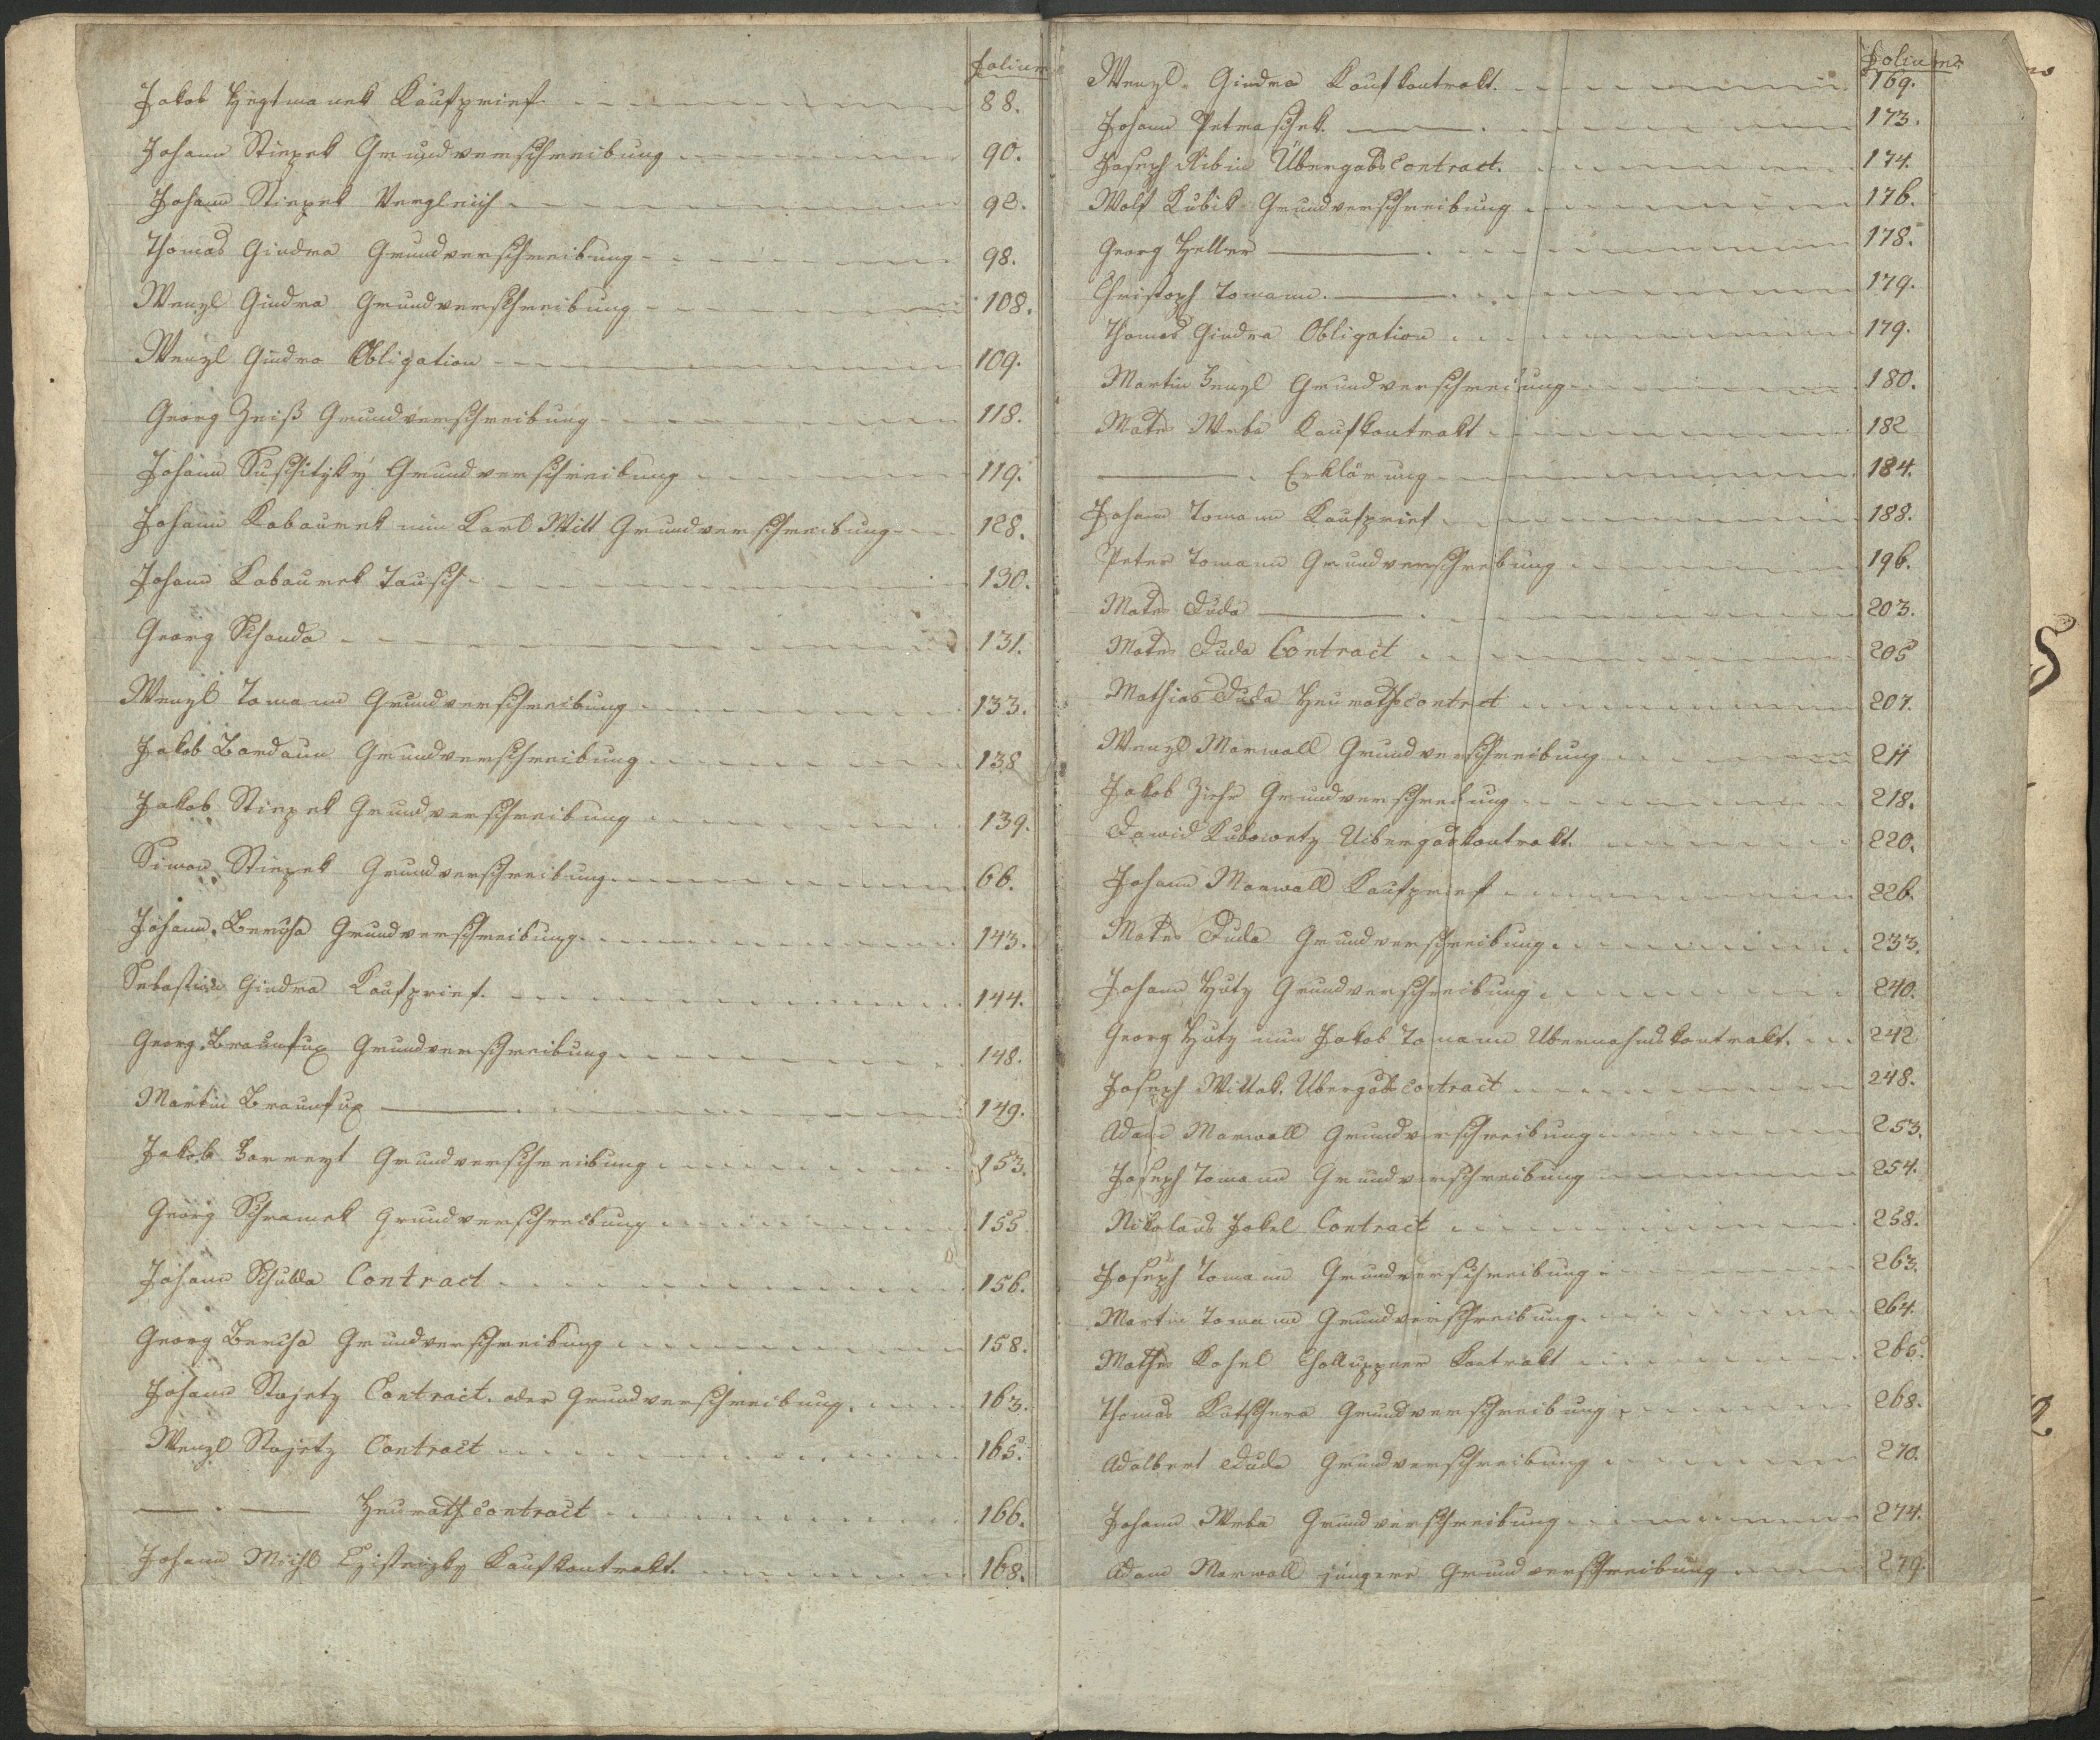 Folium
Jakob Hegtmanek Kaufprief 88.
Johann Stiepek Grundverschreibung 90.
Johann Stiepek Vergleich 92.
Thomas Gindra Grundverschreibung 98.
Wenzl Gindra Grundverschreibung 108.
Wenzl Gindra Obligation 109.
Georg Zeiß Grundverschreibung 118.
Johann Suschitzky Grundverschreibung 119.
Johann Kabaurek nun Karl Witt Grundverschreibung 128.
Johann Kabaurek Tausch 130.
Georg Schanda 131.
Wenzl Tomann Grundverschreibung 133.
Jakob Bardaun Grundverschreibung 138
Jakob Stiepek Grundverschreibung 139.
Simon Stiepek Grundverschreibung 66.
Johann Beruscha Grundverschreibung 143.
Sebastian Gindra Kaufprief. 144.
Georg Braunfux Grundverschreibung 148.
Martin Braunfux 149.
Jakob Grundverschreibung 153.
Georg Schramek Grundverschreibung 155
Johann Schulda Contract 156.
Georg Grundverschreibung 158.
Johann Stojetz Contract. oder Grundverschreibung. 163.
Wenzl Stojetz Contract 165.
Heurathscontract 166.
Johann Kaufkontrakt. 168.
Folium
Wenzl Gindra Kaufkontrakt. 169.
Johann Petraschek. 173.
Joseph Ribin Übergabscontract. 174.
Wolf Kubik Grundverschreibung 176.
Georg Heller 178.
Christoph Tomann. 179.
Thomas Gindra Obligation 179.
Martin Henzl Grundverschreibung 180.
Mates Wrba Kaufkontrakt 182
Erklärung 184.
Johann Tomann Kaufprief 188.
Peter Tomann Grundverschreibung 196.
Mates Duda 203.
Mates Duda Contract 205
Mathias Duda Heurathscontrct 207.
Wenzl Marwall Grundverschreibung 211
Jakob Ziehr Grundverschreibung 218.
Dawid Kubowetz Uibergabskontrakt. 220.
Johann Marwall Kaufprief 226.
Mates Duda Grundverschreibung. 233.
Johann Hutz Grundverschreibung 240.
Georg Hutz nun Jakob Tomann Übernahmskontrakt. 242
Joseph Wittek. Übergabscontract 248.
Adam Marwall Grundverschreibung 253.
Joseph Tomann Grundverschreibung 254.
Nikolaus Jokel Contract 258.
Joseph Tomann Grundverschreibung 263.
Martin Tomann Grundverschreibung. 264.
Mathes Kohel Challuppner Kontrakt 265.
Thomas Kutschera Grundverschreibung 268.
Adalbert Duda Grundverschreibung 270.
Johann Wrba Grundverschreibung 274.
Adam Marwall jüngere Grundverschreibung 279.